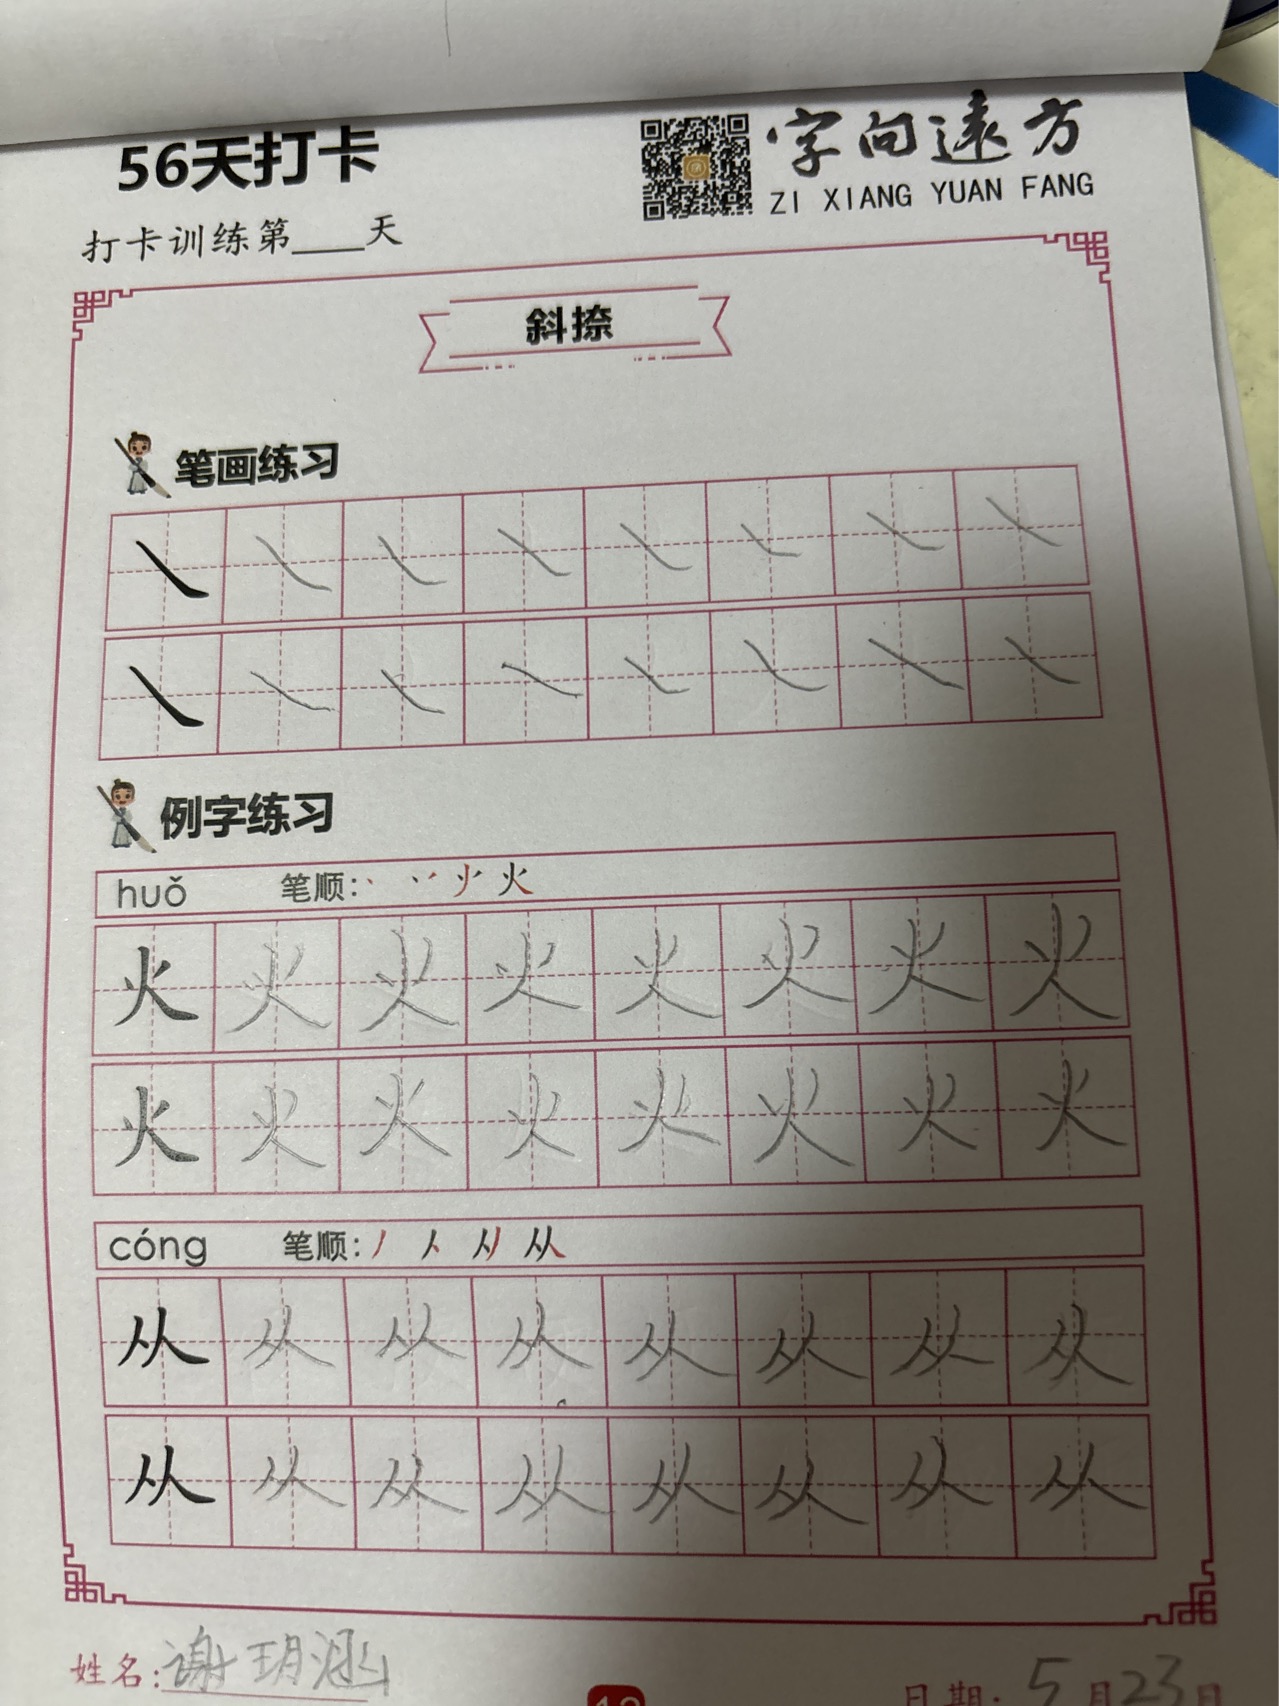 56天打卡
字向遠方
ZI XIANG YUAN FANG
打卡训练第____天
斜捺
笔画练习
㇏ ㇏ ㇏ ㇏ ㇏ ㇏ ㇏ ㇏
㇏ ㇏ ㇏ ㇏ ㇏ ㇏ ㇏ ㇏
例字练习
huǒ 笔顺: 火
火 火 火 火 火 火 火 火
火 火 火 火 火 火 火 火
cóng 笔顺: 丿 人 从
从 从 从 从 从 从 从 从
从 从 从 从 从 从 从 从
姓名:谢玥涵
日期: 5月23日